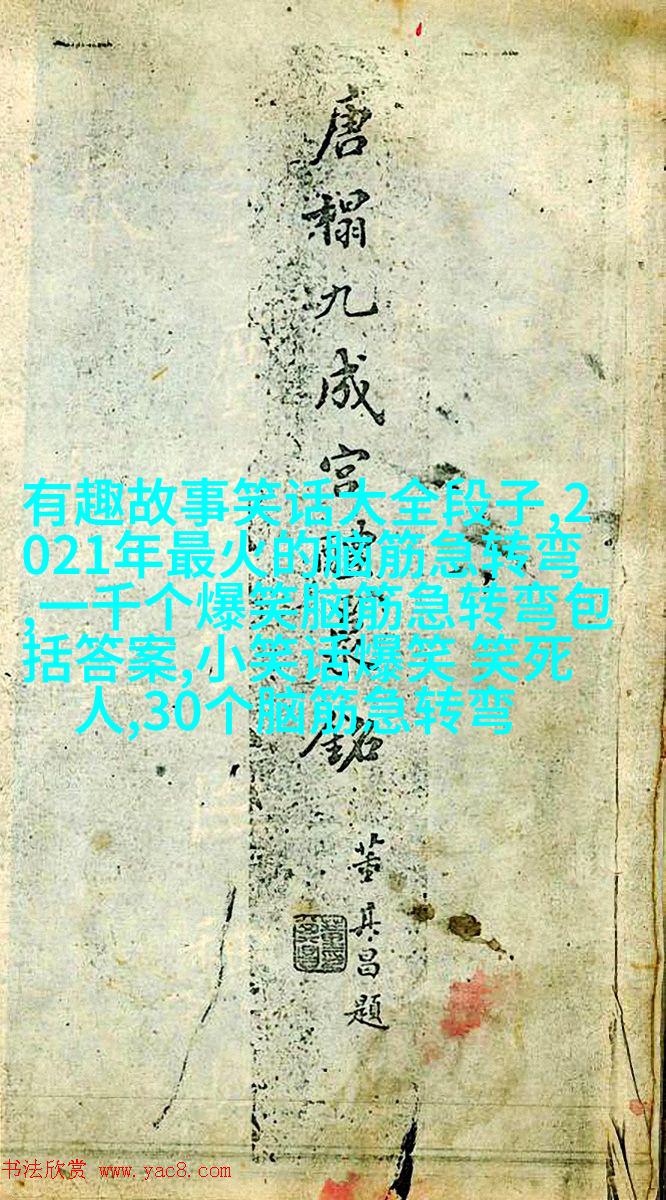 唐榻九成宫醴泉銘
董其昌題
有趣故事笑话大全段子,2
021年最火的脑筋急转弯
,一千个爆笑脑筋急转弯包
括答案,小笑话爆笑 笑死
人,30个脑筋急转弯
书法欣赏 www.yac8.com